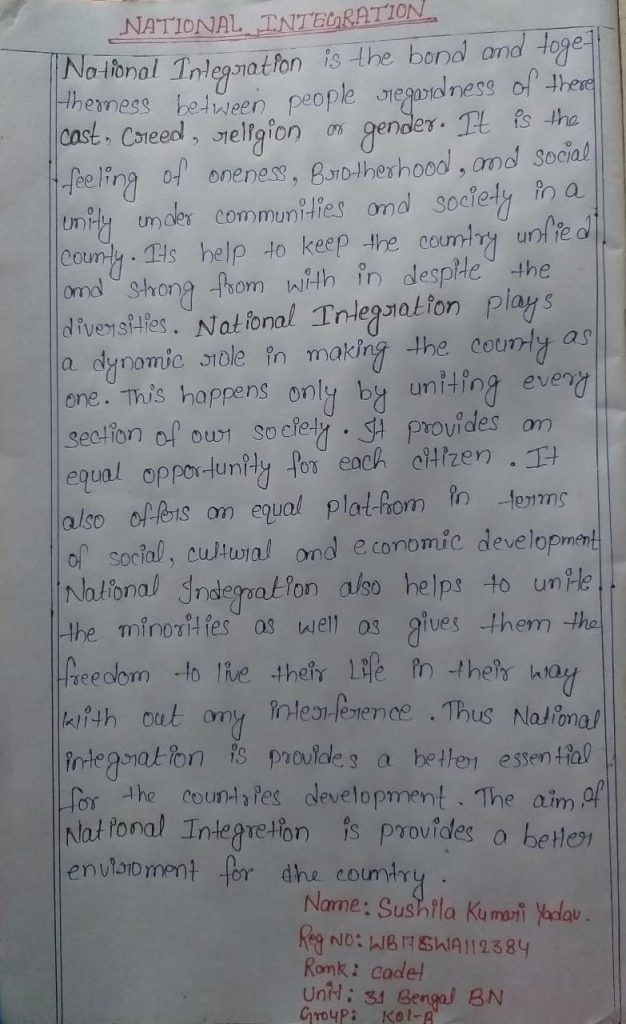 NATIONAL INTEGRATION
National Integration is the bond and toge-
therness between people regardness of there
cast, Creed, religion or gender. It is the
feeling of oneness, Brotherhood, and social
unity under communities and society in a
county. Its help to keep the country unfied
and strong from with in despite the
diversities. National Integration plays
a dynamic role in making the counrty as
one. This happens only by uniting every
section of our society. It provides an
equal opportunity for each citizen. It
also offers an equal platfrom in terms
of social, cultural and economic development
National Indegration also helps to unite
the minorities as well as gives them the
freedom to live their Life in their way
with out any interference. Thus National
integration is provides a better essential
for the countries development. The aim of
National Integretion is provides a better
enviroment for the country.
Name: Sushila Kumari Yadav.
Reg NO: WB17SWA112384
Rank: cadet
Unit: 31 Bengal BN
Group: Kol-B